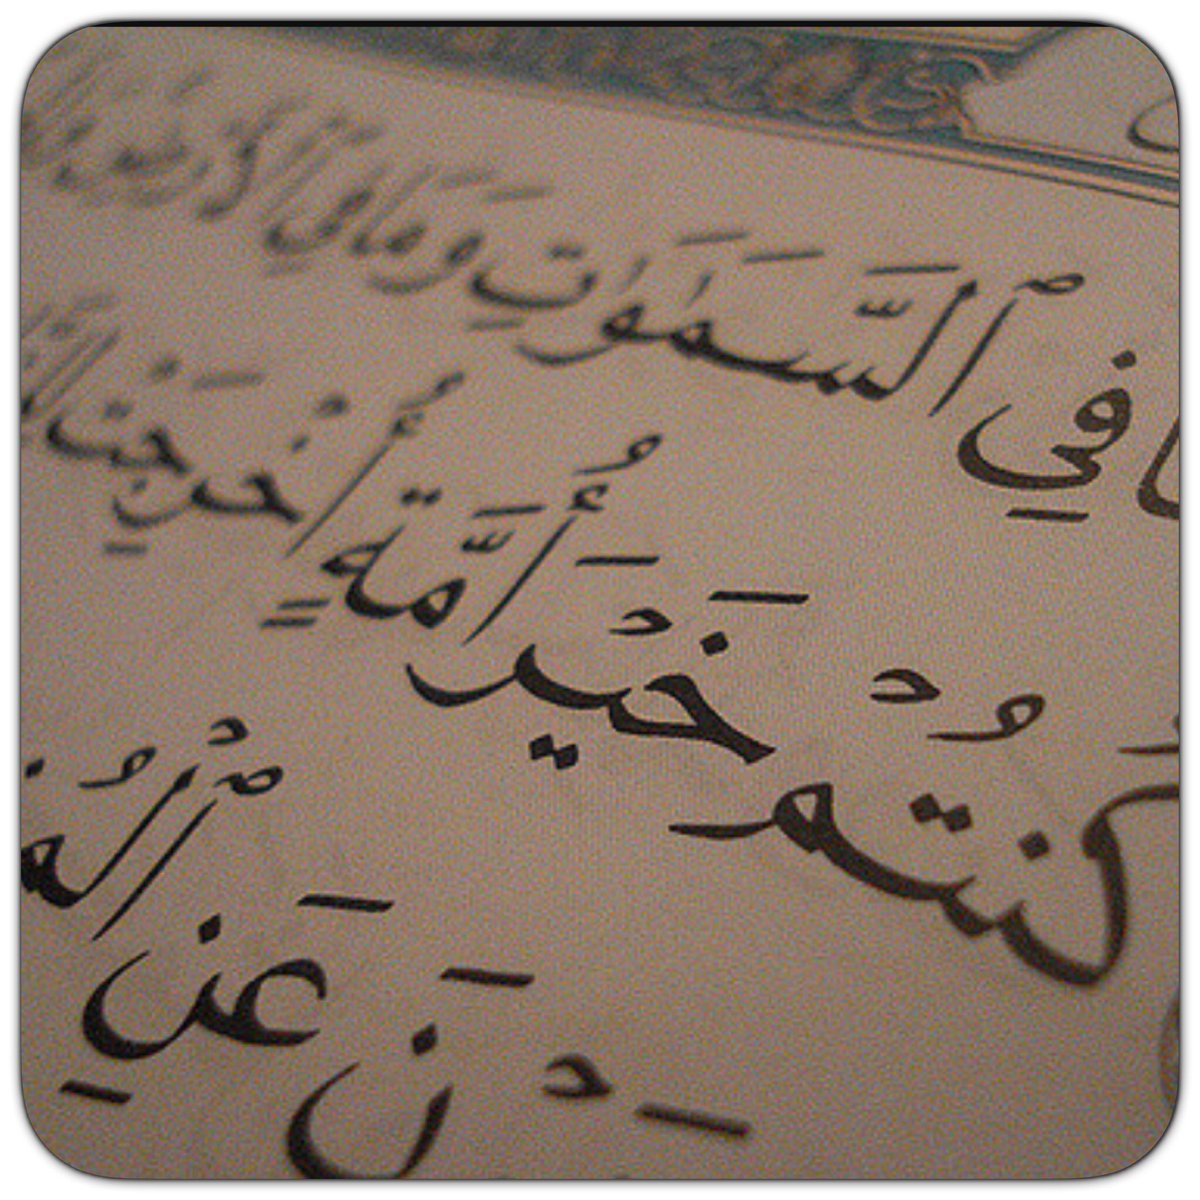 مَا فِي ٱلسَّمَٰوَٰتِ وَمَا فِي ٱلْأَرْضِ
كُنتُمْ خَيْرَ أُمَّةٍ أُخْرِجَتْ لِلنَّاسِ
نَ عَنِ ٱلْمُن